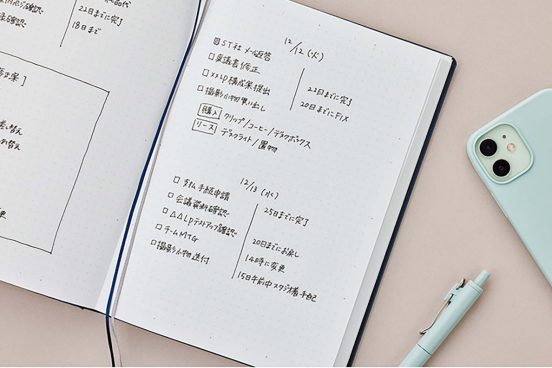 22日までに完了
18日まで
12/12(火)
ST社メール返答
稟議書修正
××LP構成案提出
撮影小物買い出し
購入 クリップ/コーヒー/デスクボックス
リース デスクライト/置物
22日までに完了
20日までにFIX
12/13(水)
支払手続申請
会議装飾確認
△△LPテストアップ確認
チームMTG
撮影小物送付
25日までに完了
20日までにお戻し
14時に変更
15日午前中スタジオ様手配